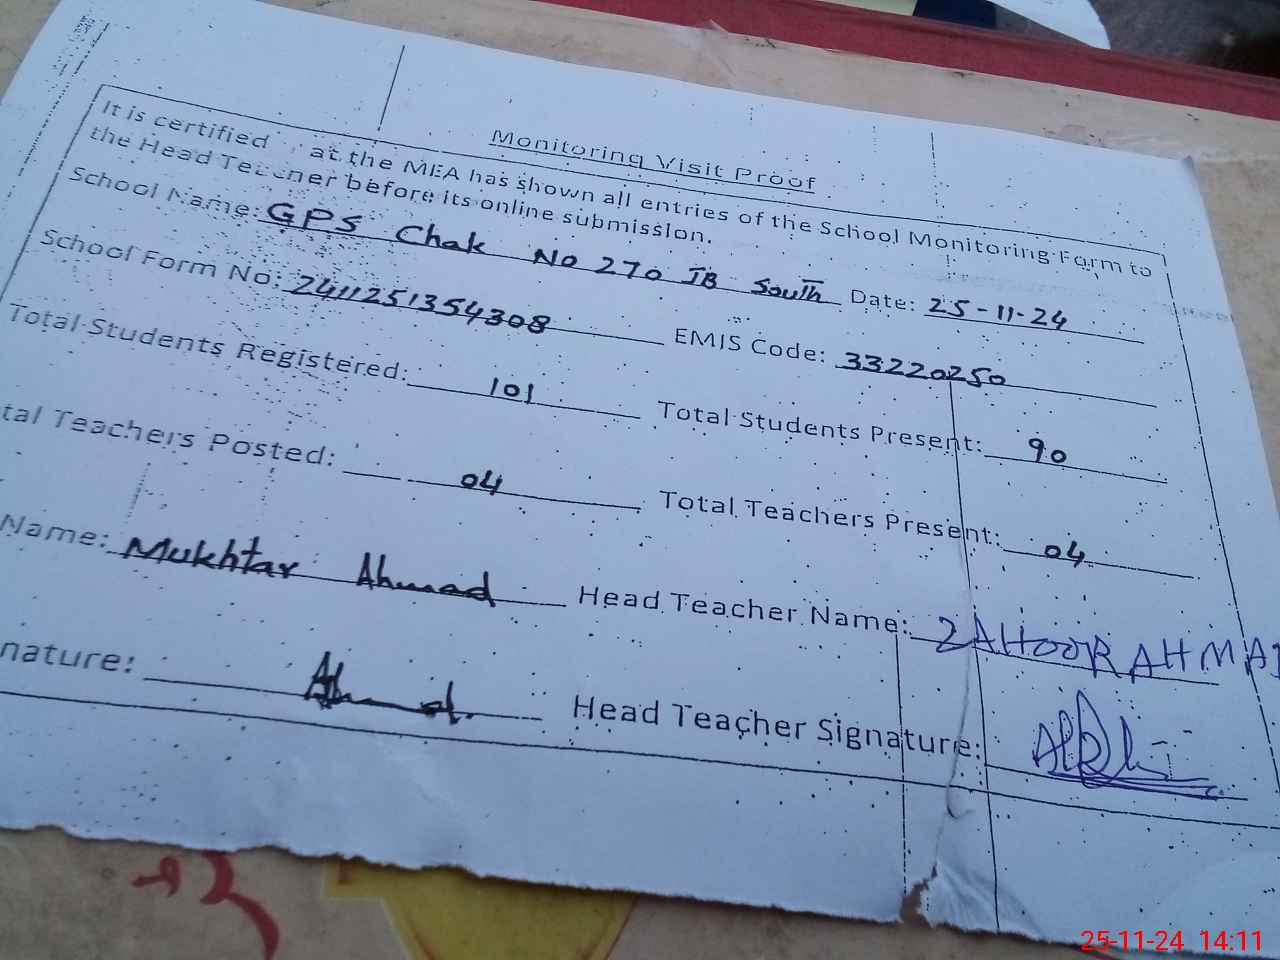 Monitoring Visit Proof
It is certified at the MEA has shown all entries of the School Monitoring Form to
the Head Teacher before its online submission.
School Name: GPS Chak No 270 JB South Date: 25-11-24
School Form No: 2411251354308 EMIS Code: 33220250
Total Students Registered: 101 Total Students Present: 90
tal Teachers Posted: 04 Total Teachers Present: 04
Name: Mukhtar Ahmad Head Teacher Name: ZAHOOR AHMAD
nature: Ahmad Head Teacher Signature:
25-11-24 14:11